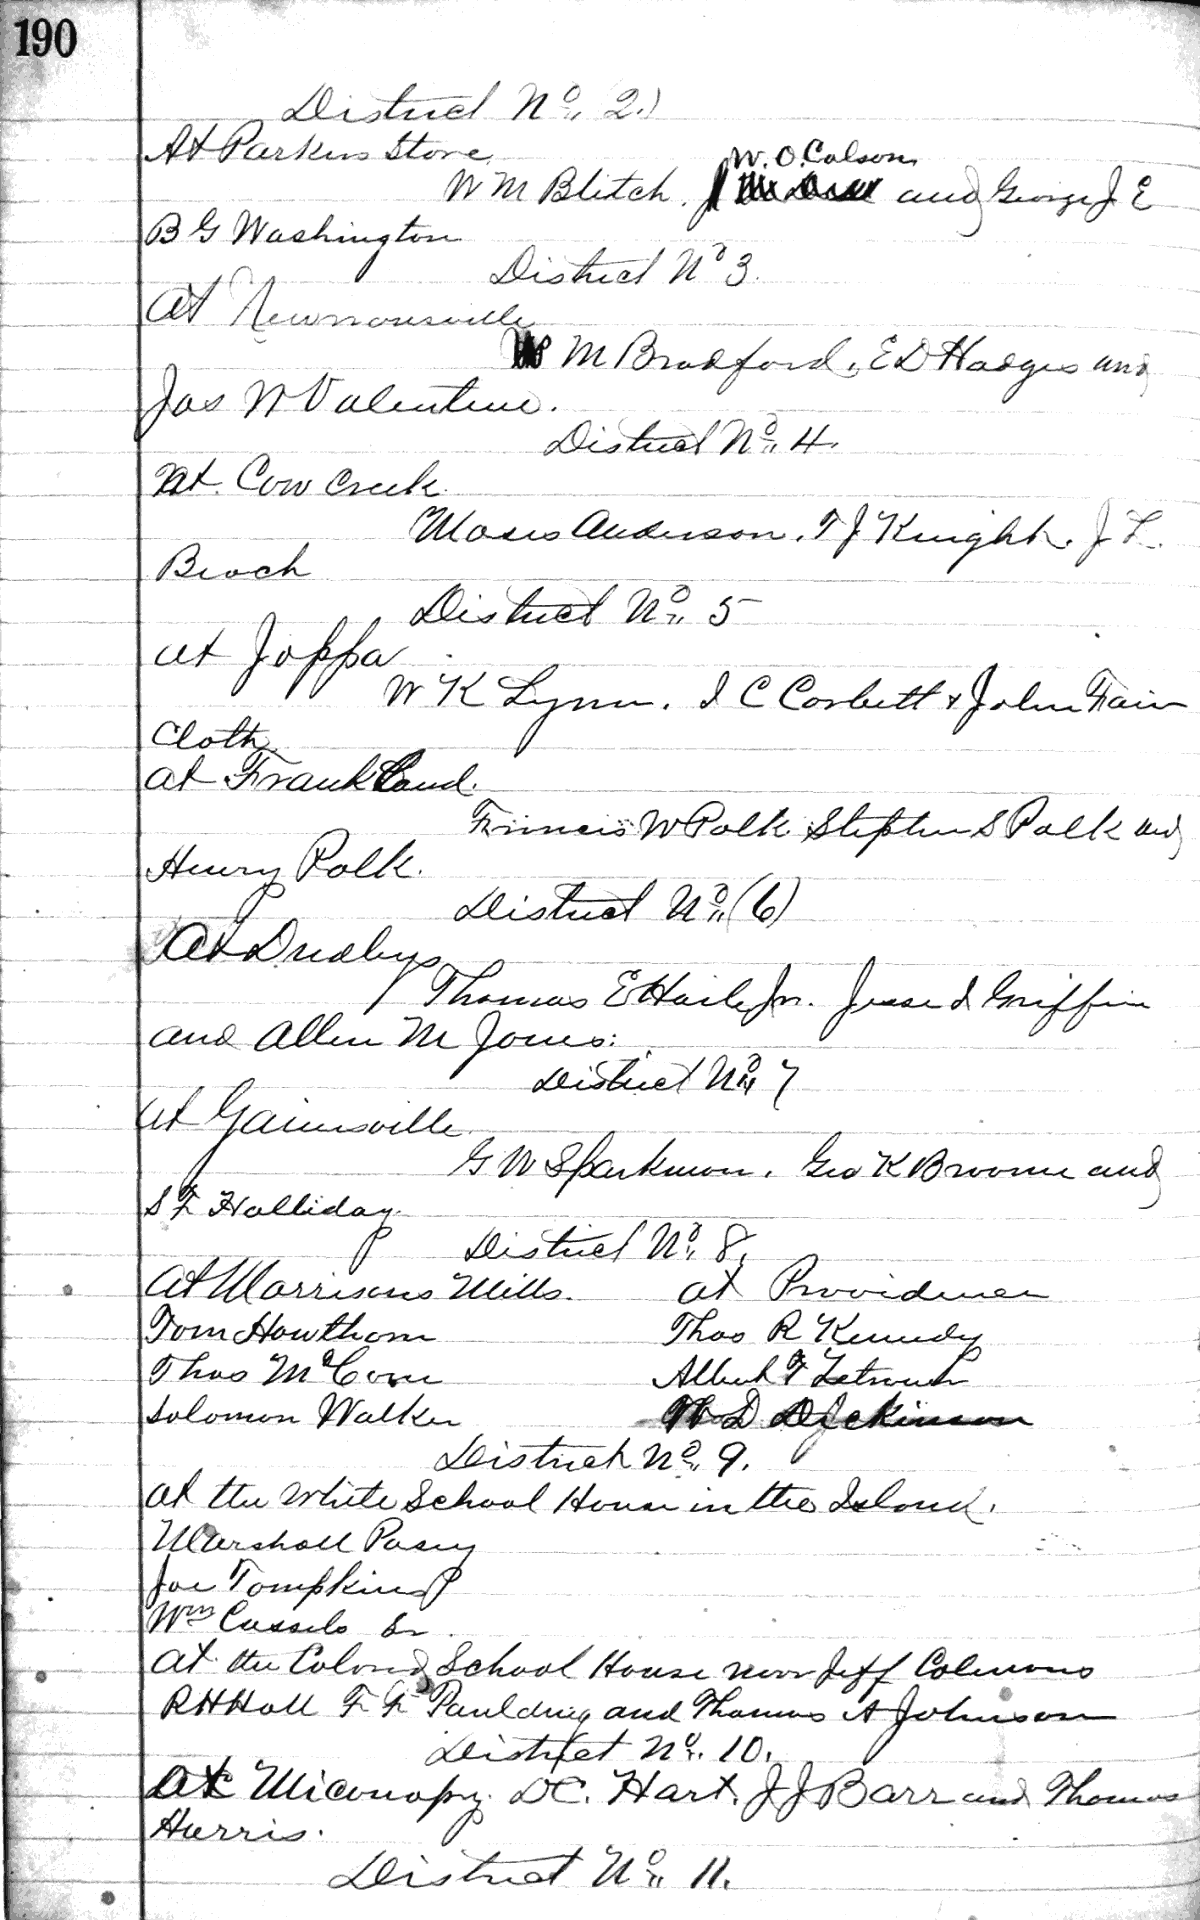 190
District No. 2.)
At Parkers Store
W. O. Colson
W M Blitch, and George J E
B G Washington
District No 3.
At Newnansville
M Bradford, E D Hadges and
Jas W Valentine.
District No. 4.
At Cow Creek.
Moses Anderson, T J Knight, J L
Beach
District No. 5
at Joppa
W K Lynn, I C Corbett & John Fair
Cloth
at Frankland.
Francis W Polk Stephen S Polk and
Henry Polk.
District No. (6)
At Dudleys
Thomas E Haile Jr. Jesse I Griffin
and Allen M Jones.
District No. 7
at Gainsville
G W Sparkman, Geo K Broome and
S F Halliday.
District No. 8.
At Morrisons Mills. at Providence
Tom Hawthorn Thos R Kennedy
Thos McCom Albert F
Solomon Walker W D Dickinson
District No. 9.
at the White School House in the Island.
Marshall Posey
Joe Tompkins
Wm Cassels Sr
at the Colored School House near Jeff Colemons
R H Hall F F Paulding and Thomas A Johnson
District No. 10.
At Micanopy. D C. Hart, J J Barr and Thomas
Harris.
District No. 11.